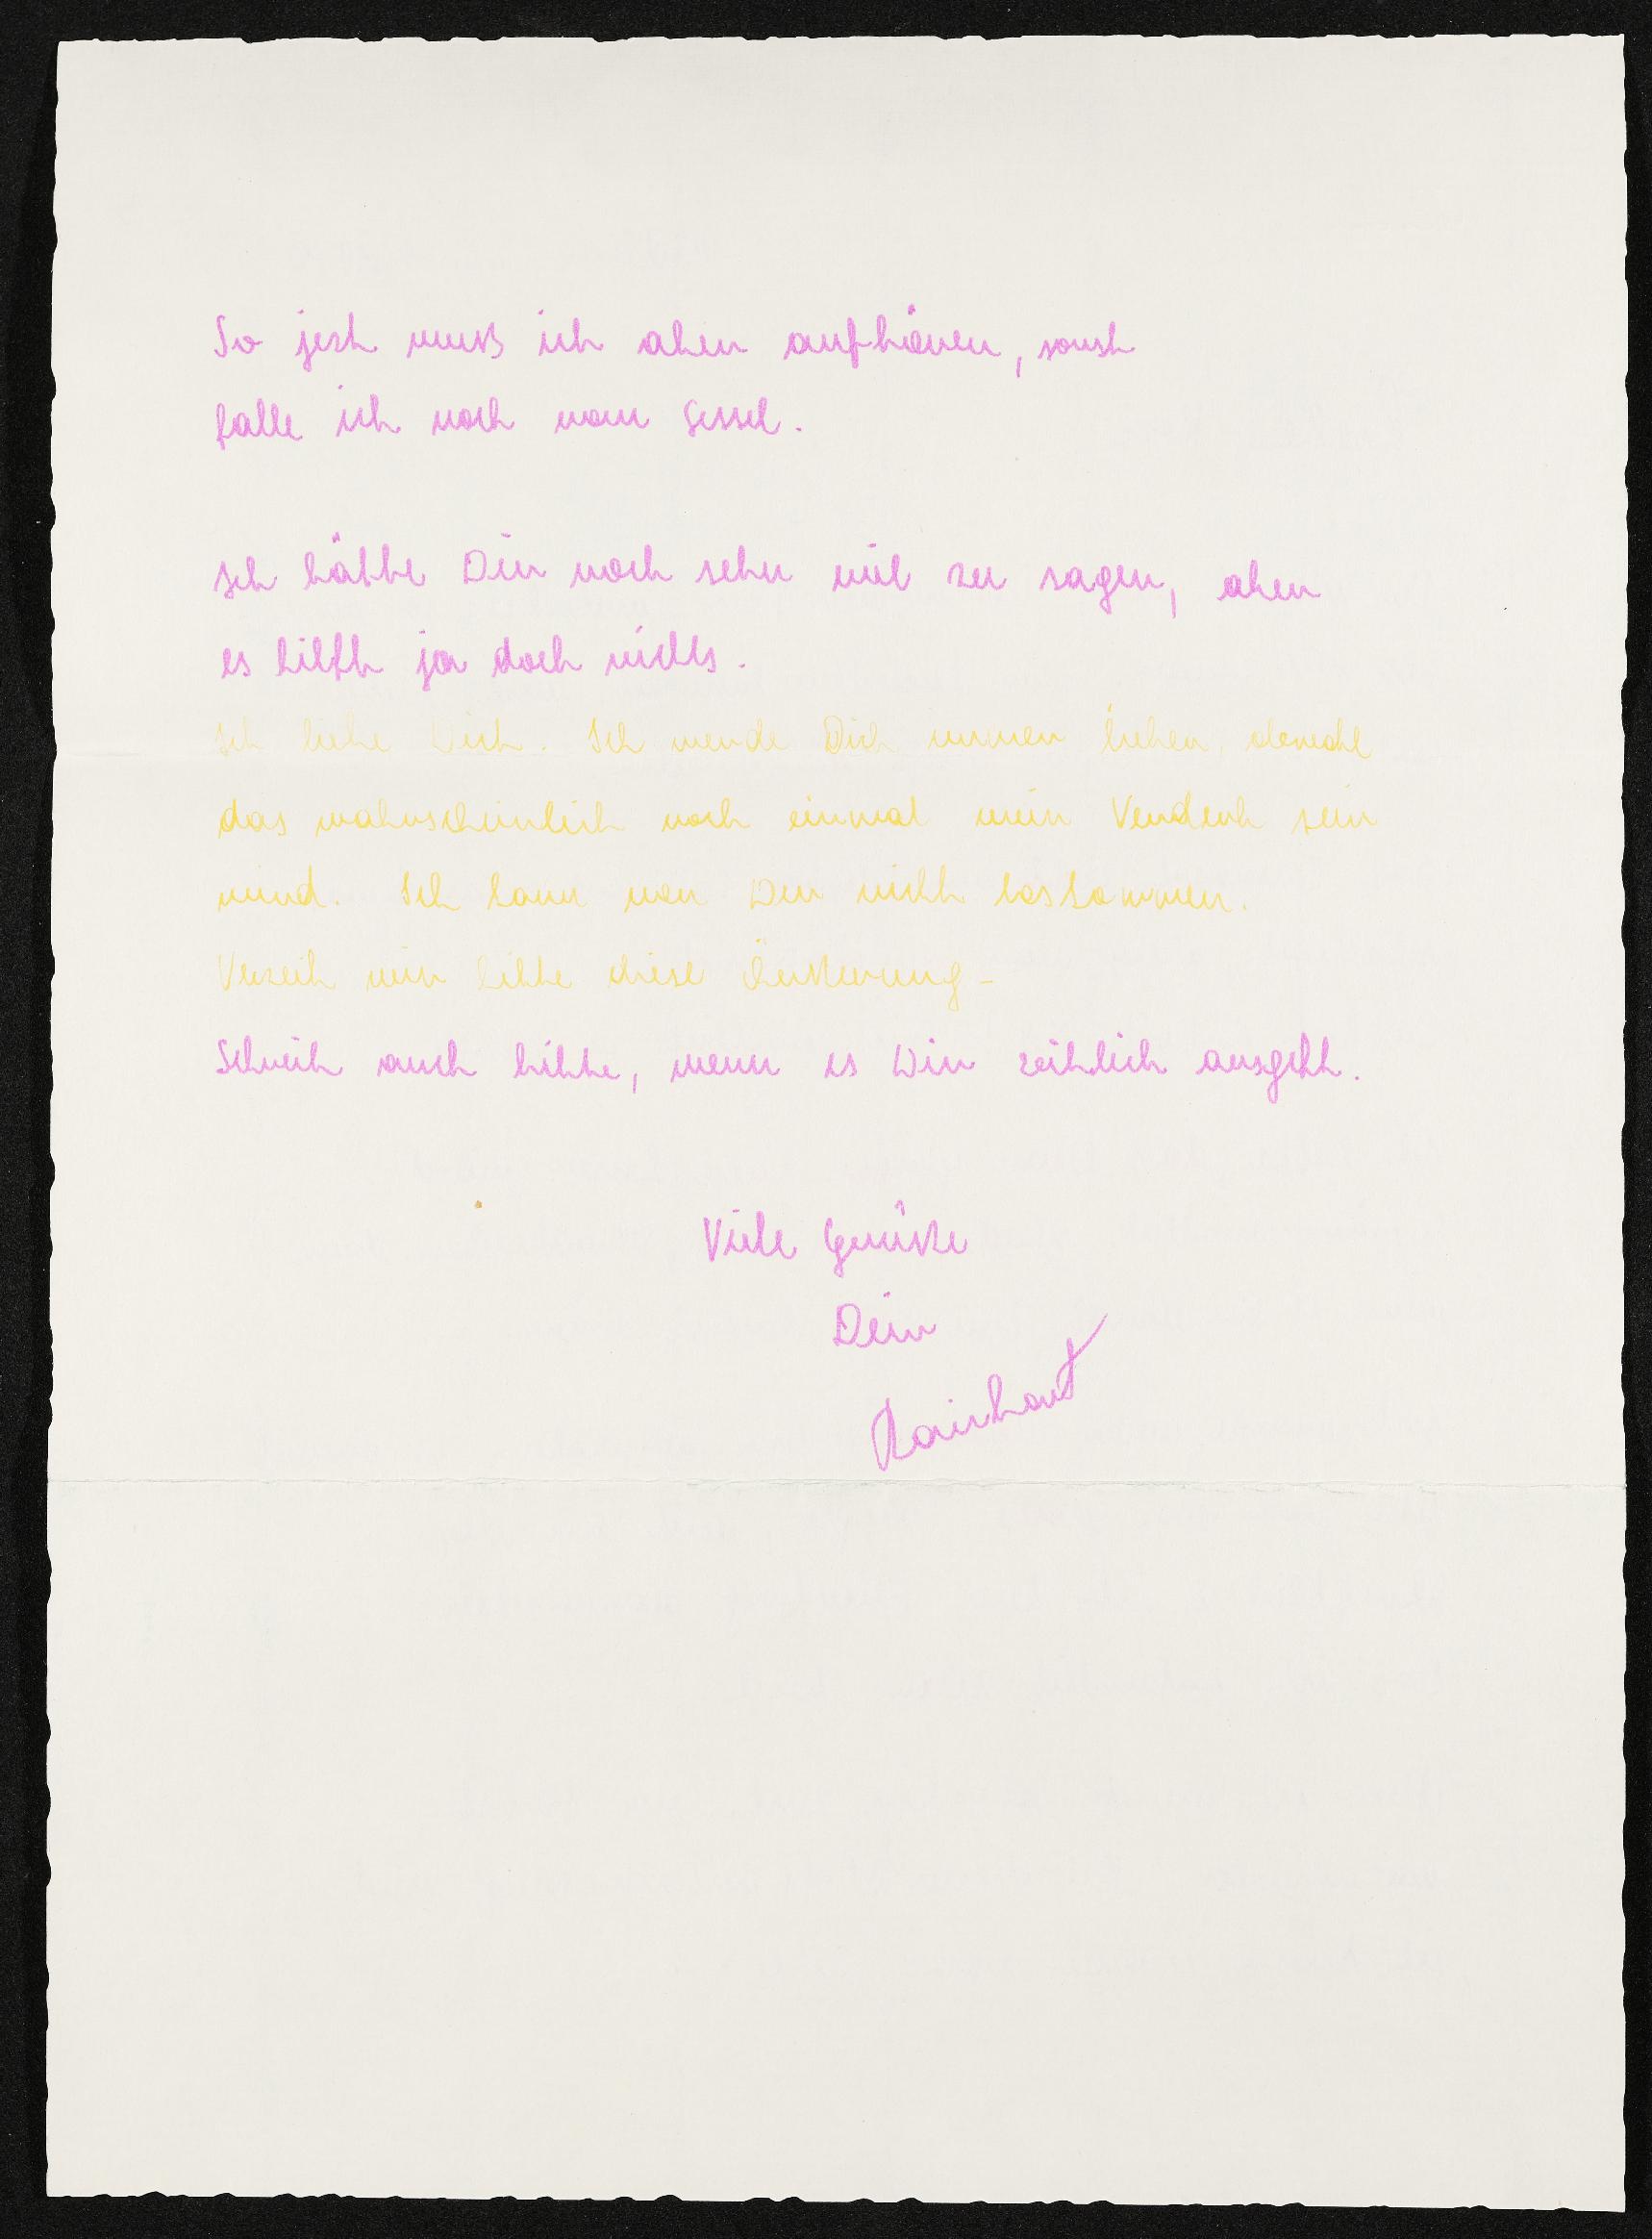 So jetzt muß ich aber aufhören, sonst
falle ich noch vom Sessel.
Ich hätte Dir noch sehr viel zu sagen, aber
es hilft ja doch nichts.
Ich liebe Dich. Ich werde Dich immer lieben, obwohl
das wahrscheinlich noch einmal mein Verderb sein
wird. Ich kann von Dir nicht loskommen.
Verzeih mir bitte diese Äußerung –
Schreib auch bitte, wenn es Dir zeitlich ausgeht.
Viele Grüße
Dein
Rainhard